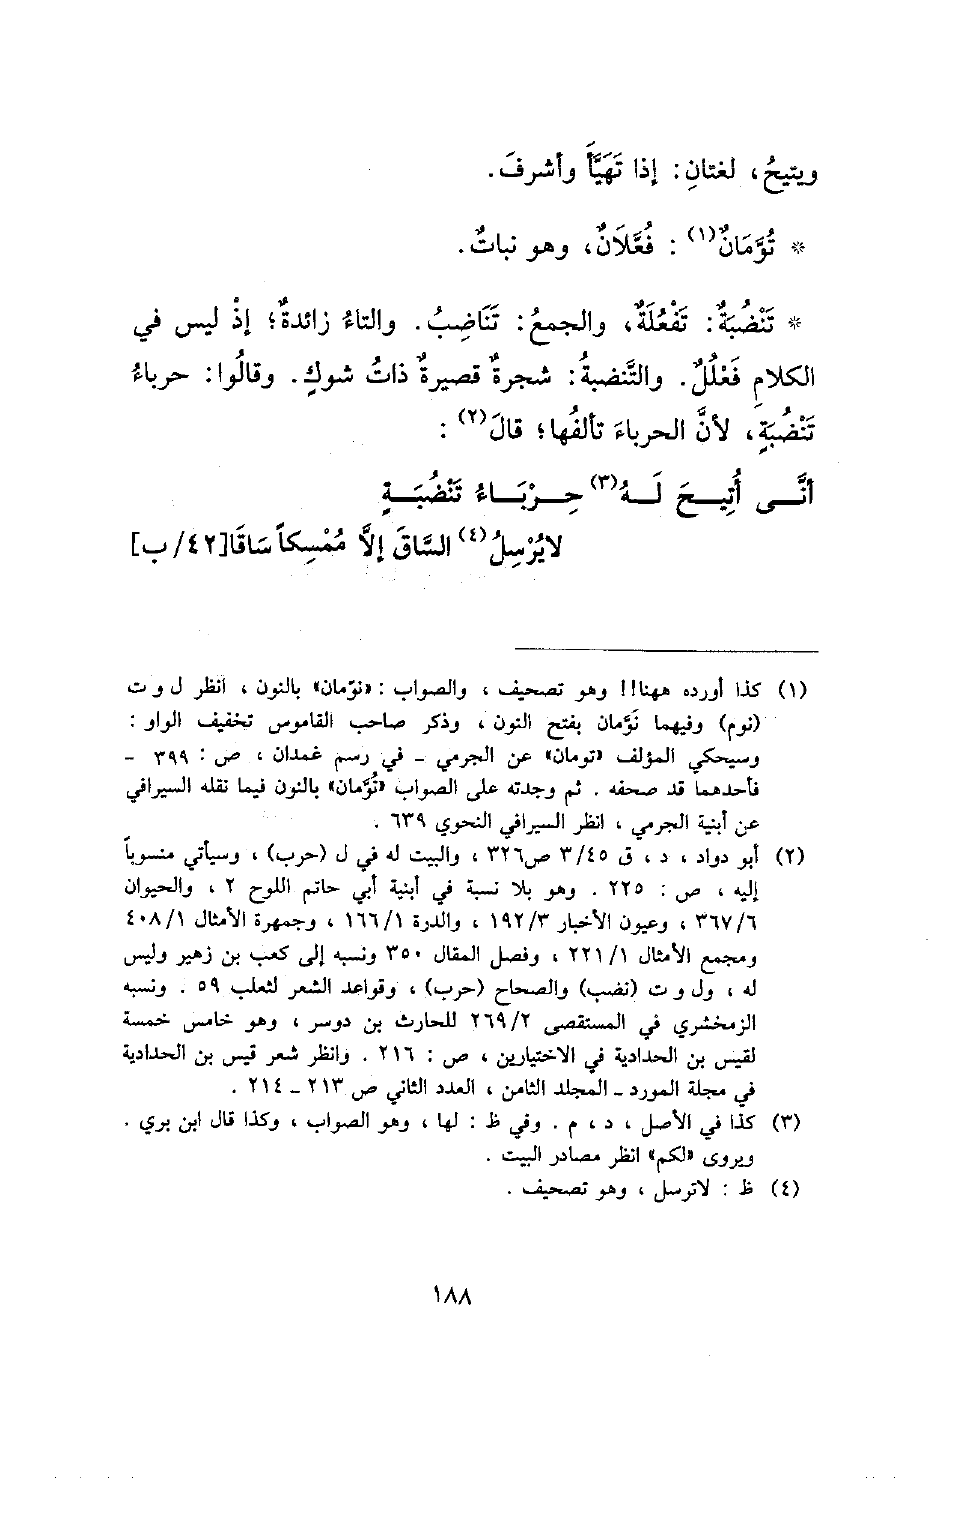 ويتيحُ، لغتانِ: إذا تَهَيَّأَ وأشرفَ.
* تُوَّمَانٌ(١) : فُعَّلَانٌ، وهو نباتٌ.
* تَنْضُبَةٌ: تَفْعُلَةٌ، والجمعُ: تَنَاضِبُ. والتاءُ زائدةٌ؛ إذْ ليس في
الكلامِ فَعْلُلٌ. والتَّنضبةُ: شجرةٌ قصيرةٌ ذاتُ شوكٍ. وقالُوا: حرباءُ
تَنْضُبَةٍ، لأنَّ الحرباءَ تألفُها؛ قالَ(٢) :
أنَّـــى أُتِيـــحَ لَـــهُ(٣) حِـــرْبَـــاءُ تَنْضُبَـــةٍ
لايُرْسِلُ(٤) السَّاقَ إلاَّ مُمْسِكاً سَاقَا[٤٢/ب]
(١) كذا أورده ههنا!! وهو تصحيف ، والصواب : «نوّمان» بالنون ، انظر ل و ت
(نوم) وفيهما نَوَّمان بفتح النون ، وذكر صاحب القاموس تخفيف الواو :
وسيحكي المؤلف «تومان» عن الجرمي ـ في رسم غمدان ، ص : ٣٩٩ ـ
فأحدهما قد صحفه . ثم وجدته على الصواب «نُوَّمان» بالنون فيما نقله السيرافي
عن أبنية الجرمي ، انظر السيرافي النحوي ٦٣٩ .
(٢) أبو دواد ، د ، ق ٣/٤٥ ص٣٢٦ ، والبيت له في ل (حرب) ، وسيأتي منسوباً
إليه ، ص : ٢٢٥ . وهو بلا نسبة في أبنية أبي حاتم اللوح ٢ ، والحيوان
٣٦٧/٦ ، وعيون الأخبار ١٩٢/٣ ، والدرة ١٦٦/١ ، وجمهرة الأمثال ٤٠٨/١
ومجمع الأمثال ٢٢١/١ ، وفصل المقال ٣٥٠ ونسبه إلى كعب بن زهير وليس
له ، ول و ت (نضب) والصحاح (حرب) ، وقواعد الشعر لثعلب ٥٩ . ونسبه
الزمخشري في المستقصى ٢٦٩/٢ للحارث بن دوسر ، وهو خامس خمسة
لقيس بن الحدادية في الاختيارين ، ص : ٢١٦ . وانظر شعر قيس بن الحدادية
في مجلة المورد ـ المجلد الثامن ، العدد الثاني ص ٢١٣ ـ ٢١٤ .
(٣) كذا في الأصل ، د ، م . وفي ظ : لها ، وهو الصواب ، وكذا قال ابن بري .
ويروى «لكم» انظر مصادر البيت .
(٤) ظ : لاترسل ، وهو تصحيف .
١٨٨